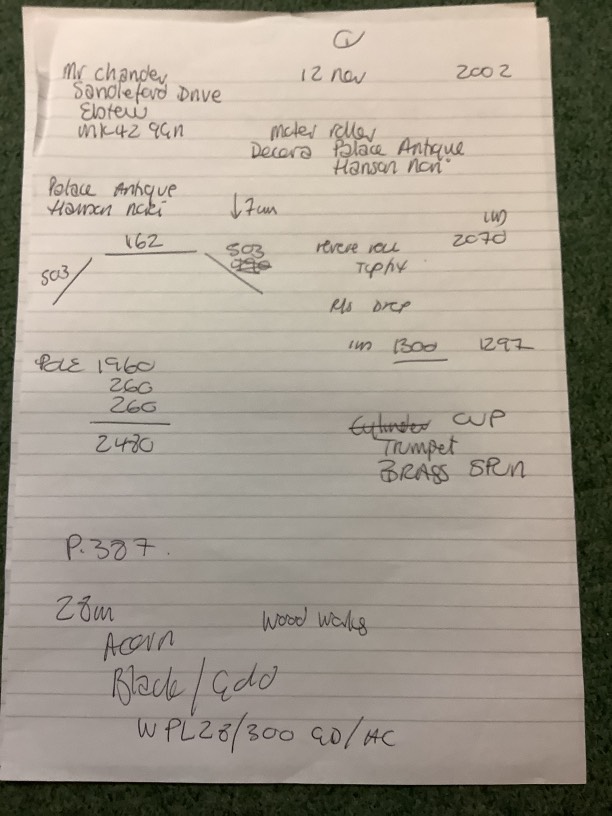 Mr Chander 12 Nov 2002
Sandleford Drive
Elstew
MK42 9GN
Moter roller
Decora Palace Antique
Hanson
Palace Antique
Hanson
↓7cm
162
503 503
revere roll 2070
R/S Drop
1300 1297
Pole 1960
260
260
2480
Cylinder CUP
Trumpet
BRASS SPUN
P.387.
28m Wood Works
Acorn
Black/Gold
WPL28/300 GD/AC